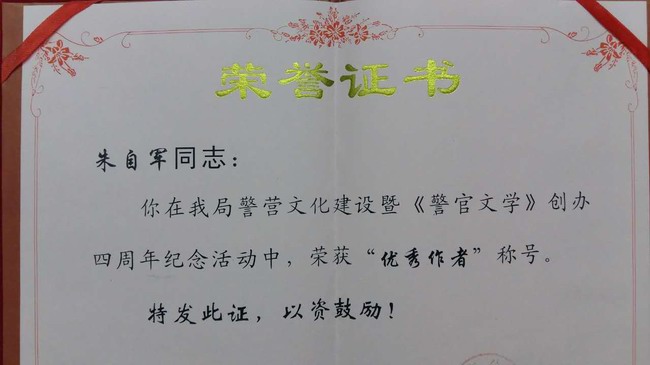 荣誉证书
朱自军同志：
你在我局警营文化建设暨《警官文学》创办
四周年纪念活动中，荣获“优秀作者”称号。
特发此证，以资鼓励！